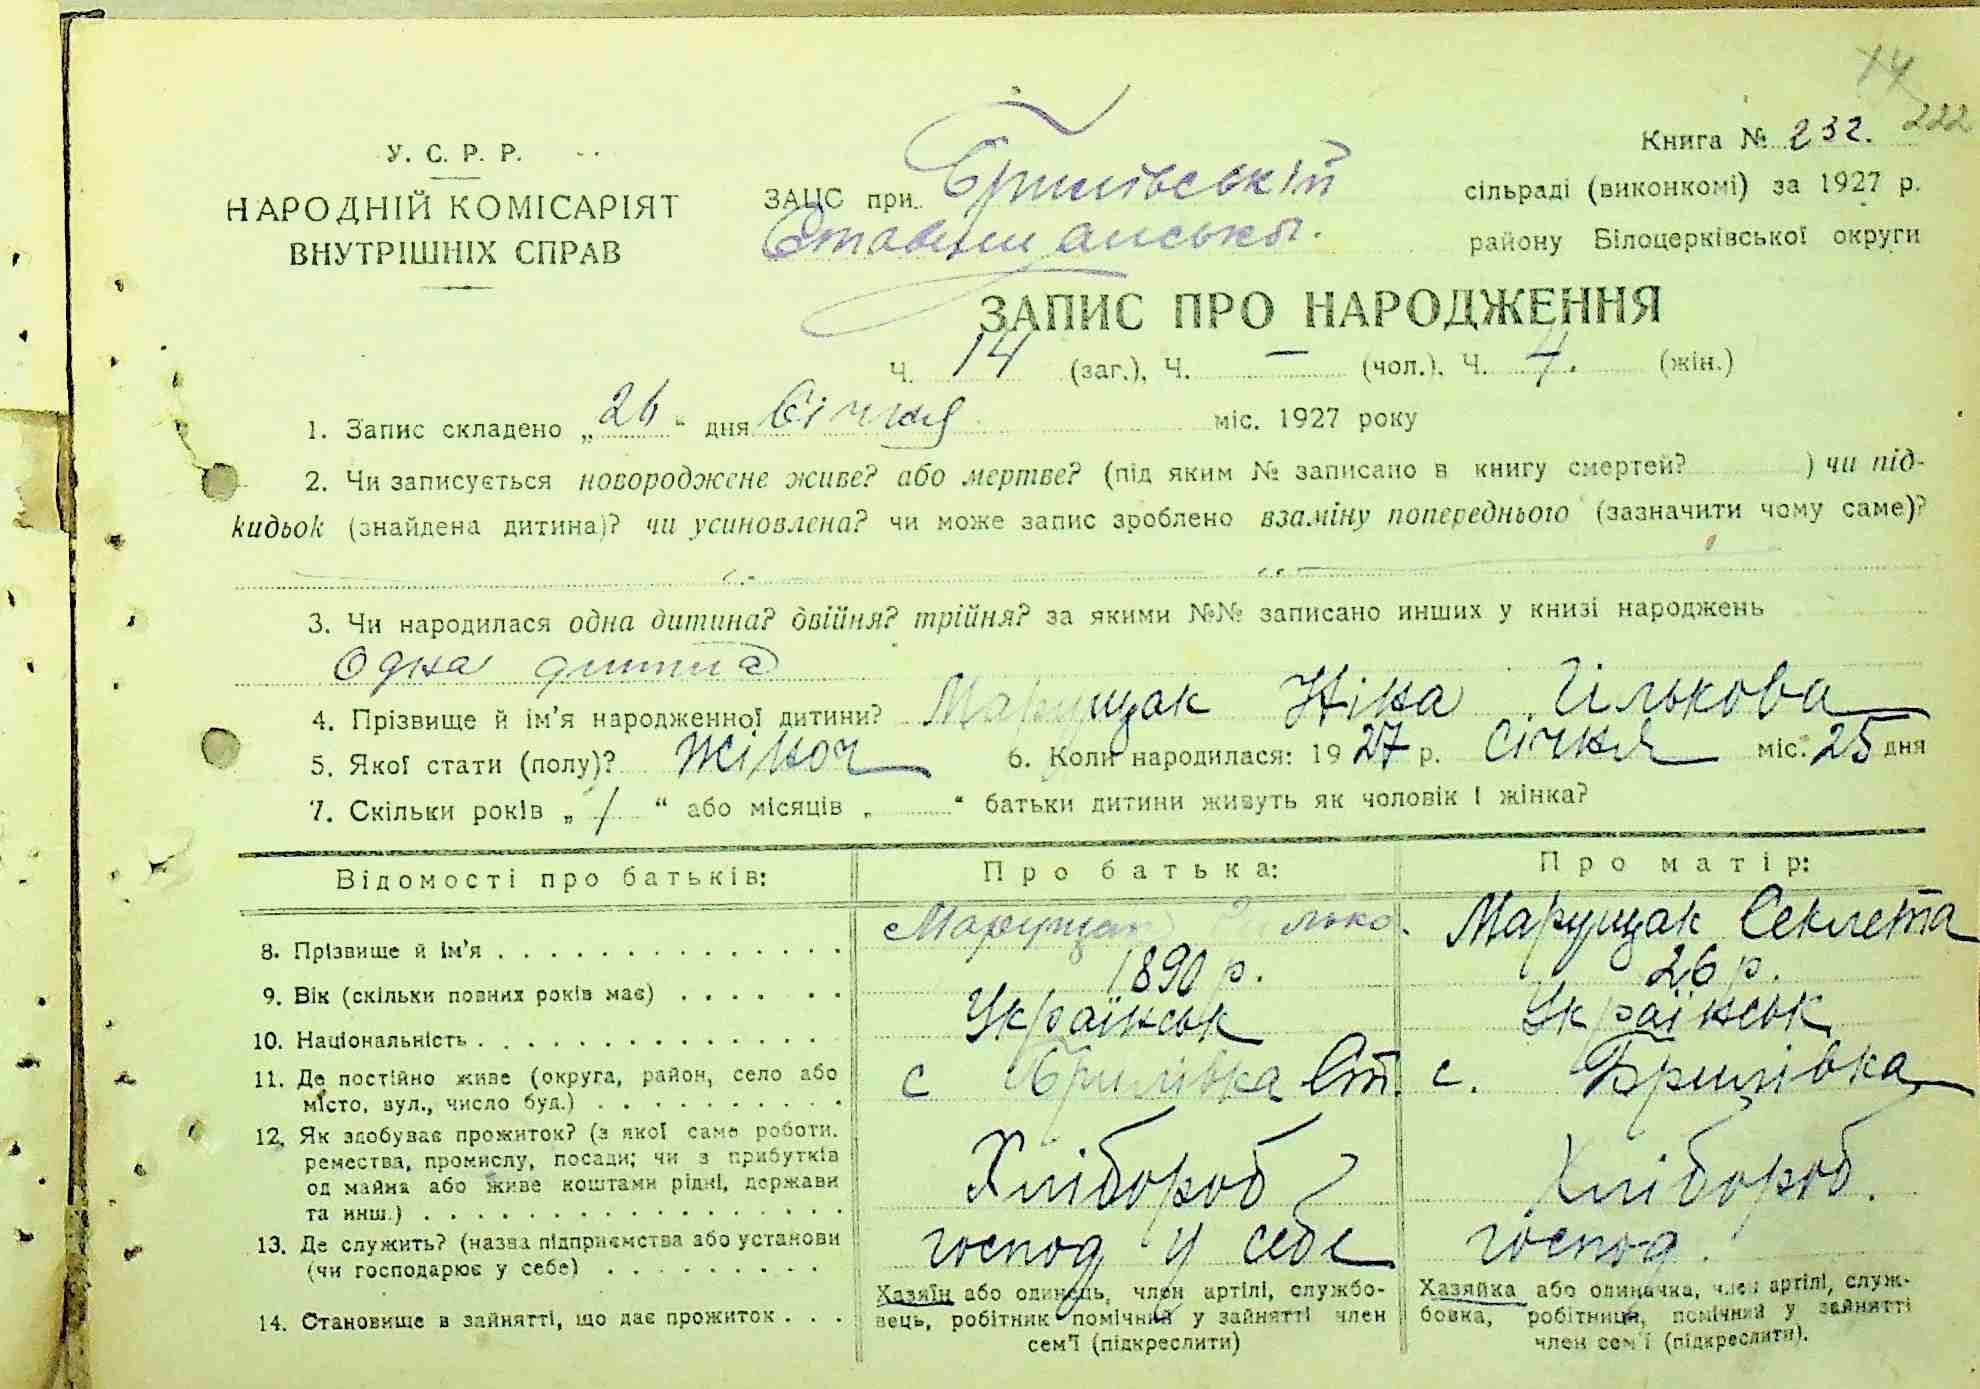 14
222
Книга № 232.
У. С. Р. Р.
НАРОДНІЙ КОМІСАРІЯТ
ВНУТРІШНІХ СПРАВ
ЗАЦС при Брилівській сільраді (виконкомі) за 1927 р.
району Білоцерківської округи
ЗАПИС ПРО НАРОДЖЕННЯ
Ч. 14 (заг.), Ч. — (чол.), Ч. 4. (жін.)
1. Запис складено „26“ дня Січня міс. 1927 року
2. Чи записується новороджене живе? або мертве? (під яким № записано в книгу смертей? ) чи під-
кидьок (знайдена дитина)? чи усиновлена? чи може запис зроблено взаміну попереднього (зазначити чому саме)?
3. Чи народилася одна дитина? двійня? трійня? за якими №№ записано инших у книзі народжень
Одна дитина
4. Прізвище й ім’я народженної дитини? Марущак Ніна Ількова
5. Якої стати (полу)? Жіноч 6. Коли народилася: 1927 р. Січня міс. 25 дня
7. Скільки років „1“ або місяців „ “ батьки дитини живуть як чоловік і жінка?
Відомості про батьків: Про батька: Про матір:
8. Прізвище й ім’я Марущак Ілько. Марущак Секлета
9. Вік (скільки повних років має) 1890 р. 26 р.
10. Національність Українськ Українськ
11. Де постійно живе (округа, район, село або
місто, вул., число буд.) с Брилівка Ст. с. Брилівка
12. Як здобуває прожиток? (з якої саме роботи,
ремества, промислу, посади; чи з прибутків
од майна або живе коштами рідні, держави
та инш.) Хлібороб Хлібороб.
13. Де служить? (назва підприємства або установи
(чи господарює у себе) господ у себе господ.
14. Становище в зайнятті, що дає прожиток
Хазяїн або одинець, член артілі, службо-
вець, робітник помічний у зайнятті член
сем’ї (підкреслити)
Хазяйка або одиначка, член артілі, служ-
бовка, робітниця, помічний у зайнятті
член сем’ї (підкреслити).